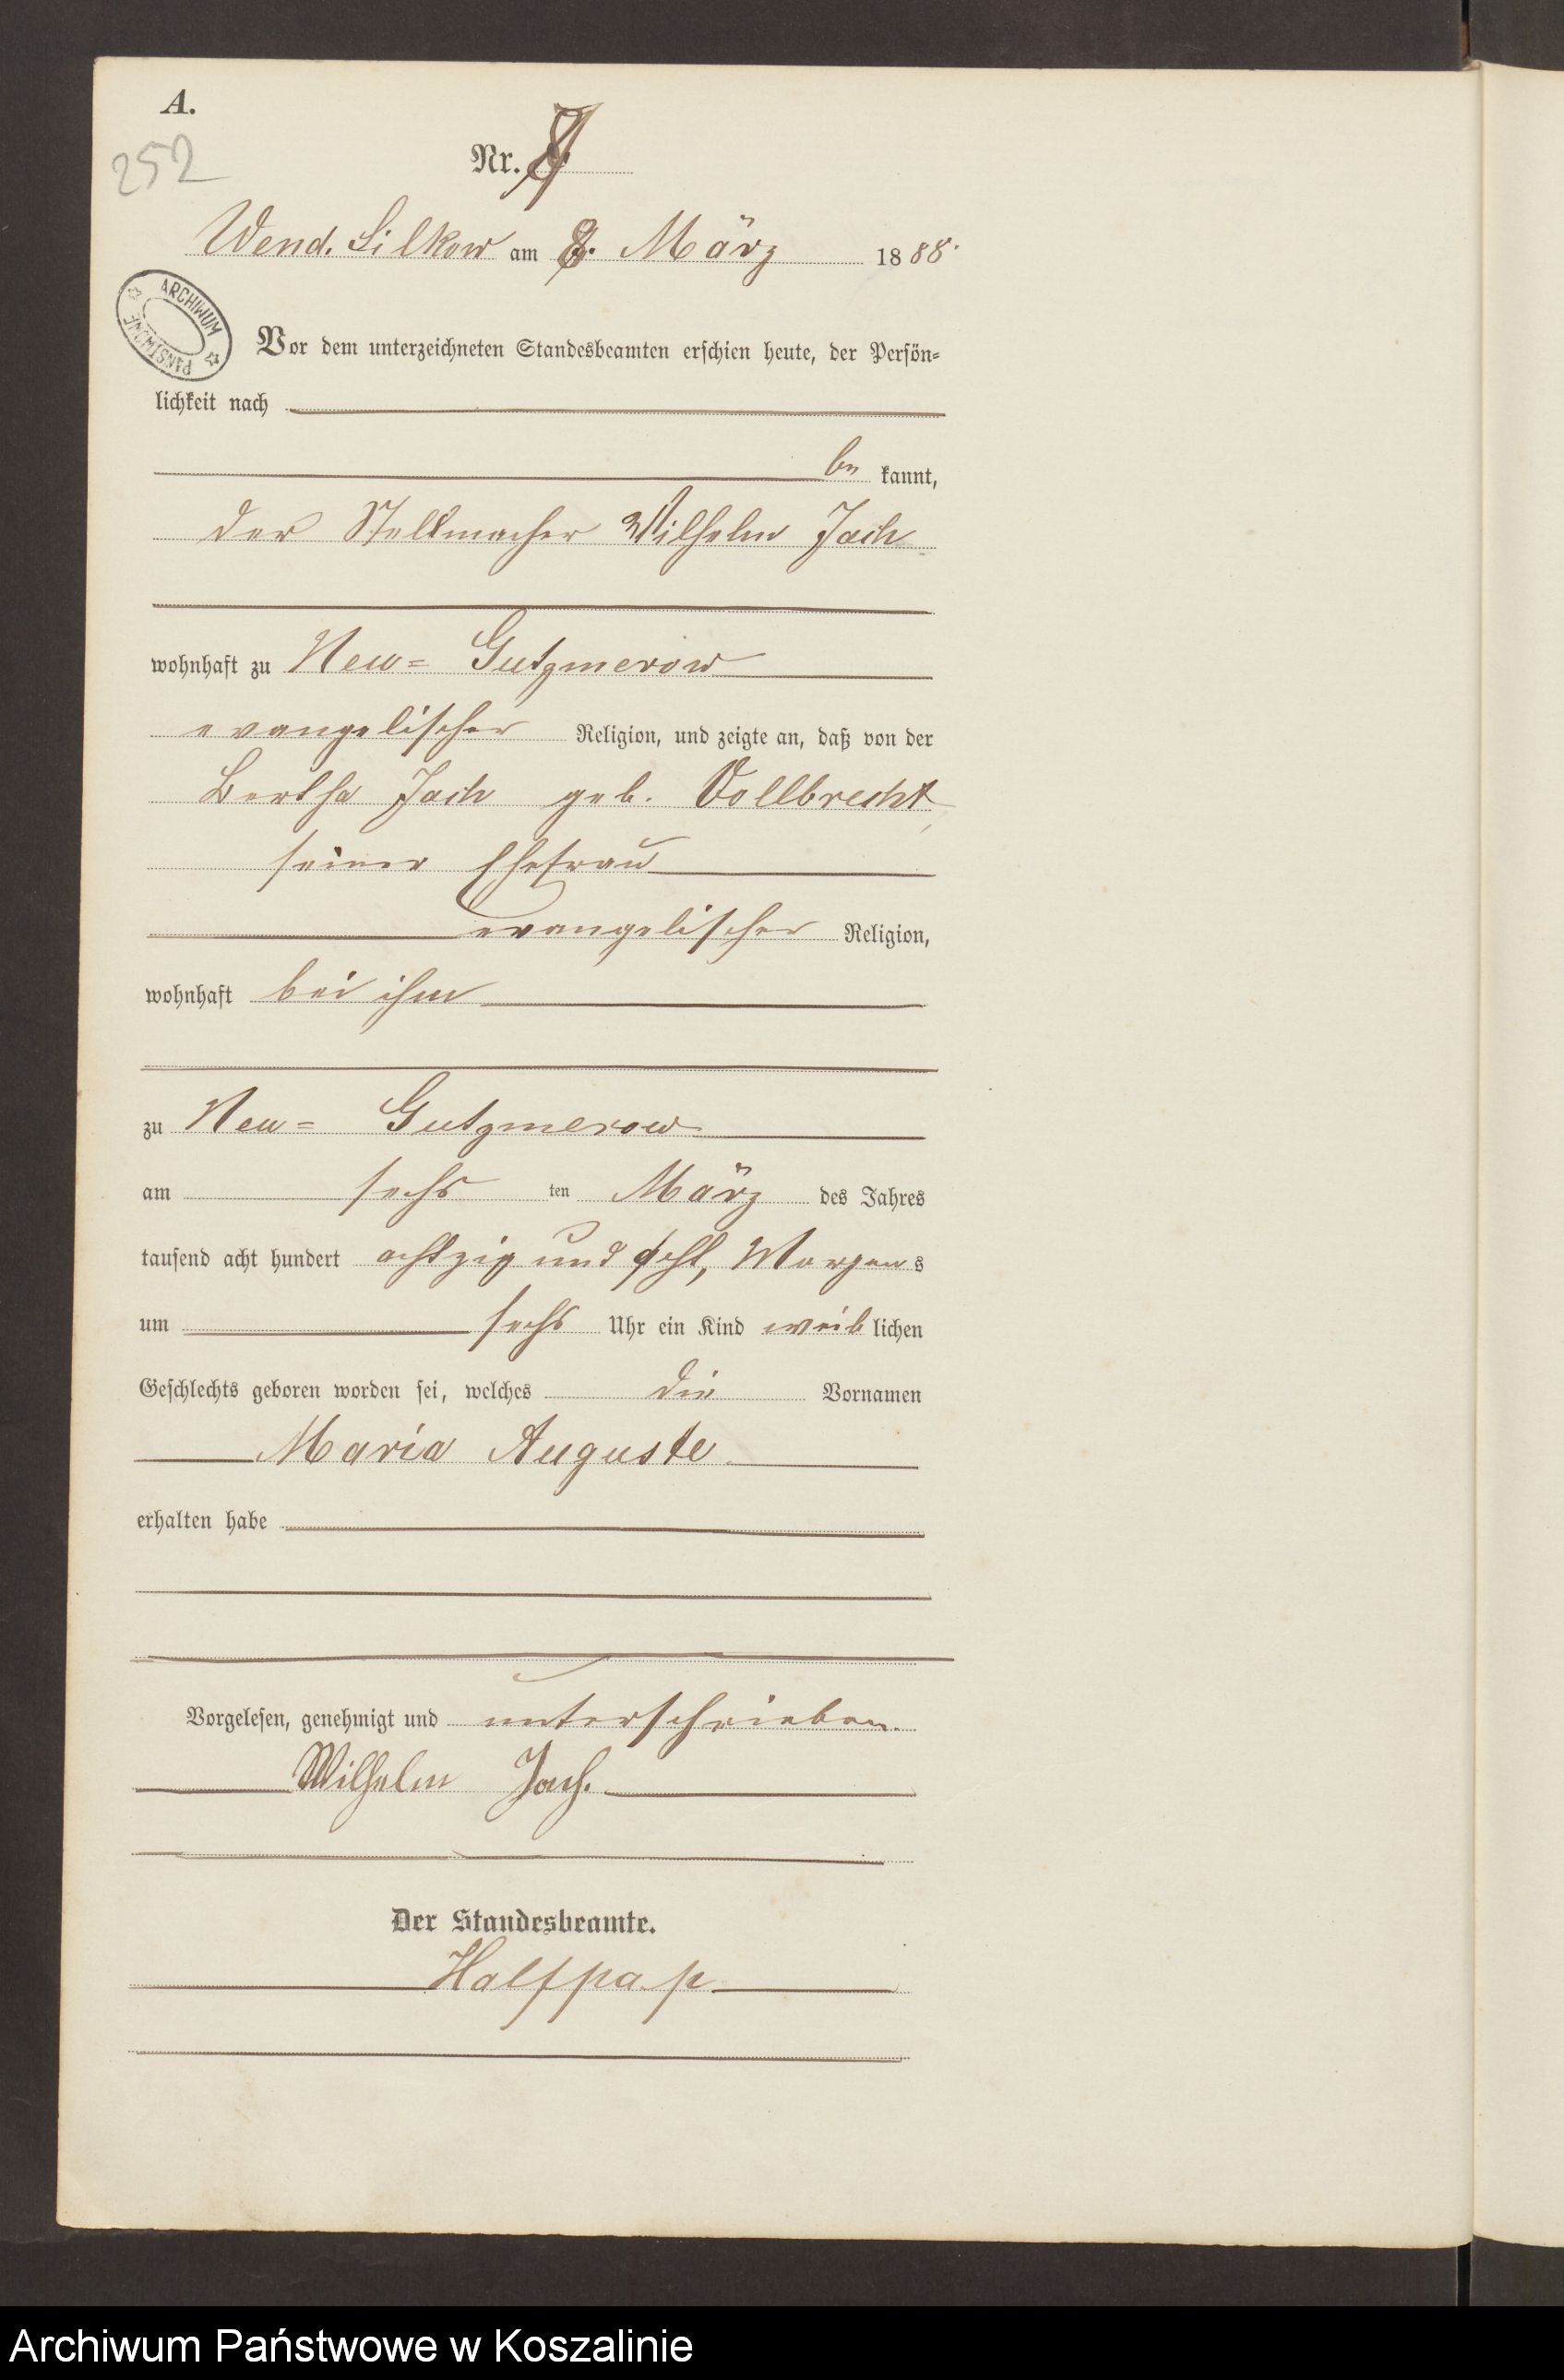 A.
252
Nr. 8
Wend. Silkow am 8. März 1888.
ARCHIWUM PAŃSTWOWE
Vor dem unterzeichneten Standesbeamten erschien heute, der Persön-
lichkeit nach
be kannt,
der Stellmacher Wilhelm Jach
wohnhaft zu Neu- Gutzmerow
evangelischer Religion, und zeigte an, daß von der
Bertha Jach geb. Vollbrecht,
seiner Ehefrau
evangelischer Religion,
wohnhaft bei ihm
zu Neu- Gutzmerow
am sechs ten März des Jahres
tausend acht hundert achtzig und acht, Morgens
um sechs Uhr ein Kind weiblichen
Geschlechts geboren worden sei, welches die Vornamen
Maria Auguste
erhalten habe
Vorgelesen, genehmigt und unterschrieben.
Wilhelm Jach.
Der Standesbeamte.
Halfpap
Archiwum Państwowe w Koszalinie